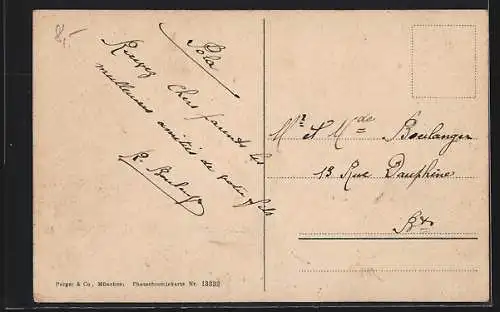 8,-
Pola
Recevez chers parents les
meilleures amitiés de votre fils
R. Boulanger
Mr et Mde Boulanger
13 Rue Dauphine
Bx
Purger & Co., München, Photochromiekarte Nr. 13333